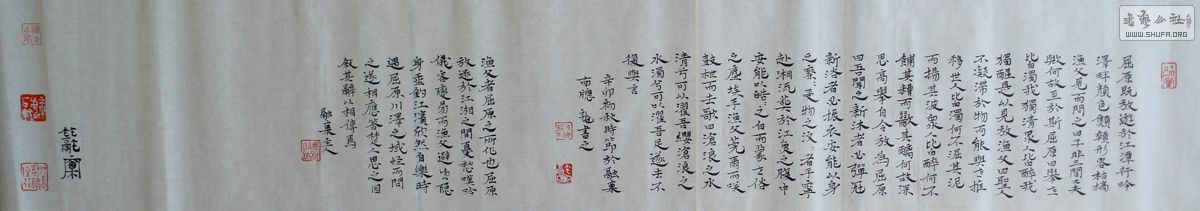 屈原既放遊於江潭行吟
澤畔顏色顦顇形容枯槁
漁父見而問之曰子非三閭大夫
歟何故至於斯屈原曰舉世
皆濁我獨清眾人皆醉我
獨醒是以見放漁父曰聖人
不凝滯於物而能與世推
移世人皆濁何不淈其泥
而揚其波眾人皆醉何不
餔其糟而歠其醨何故深
思高舉自令放為屈原
曰吾聞之新沐者必彈冠
新浴者必振衣安能以身
之察察受物之汶汶者乎寧
赴湘流葬於江魚之腹中
安能以皓皓之白而蒙世俗
之塵埃乎漁父莞爾而笑
鼓枻而去歌曰滄浪之水
清兮可以濯吾纓滄浪之
水濁兮可以濯吾足遂去不
復與言
辛卯初秋時節於融裏
書之
漁父者屈原之所作也屈原
放逐於江湘之間憂愁嘆吟
儀容變易而漁父避世隱
身垂釣江濱欣然自樂時
遇屈原川澤之域怪而問
之遂相應答楚人思之因
敘其辭以相傳焉
融裏主人
書藝公社
WWW.SHUFA.ORG